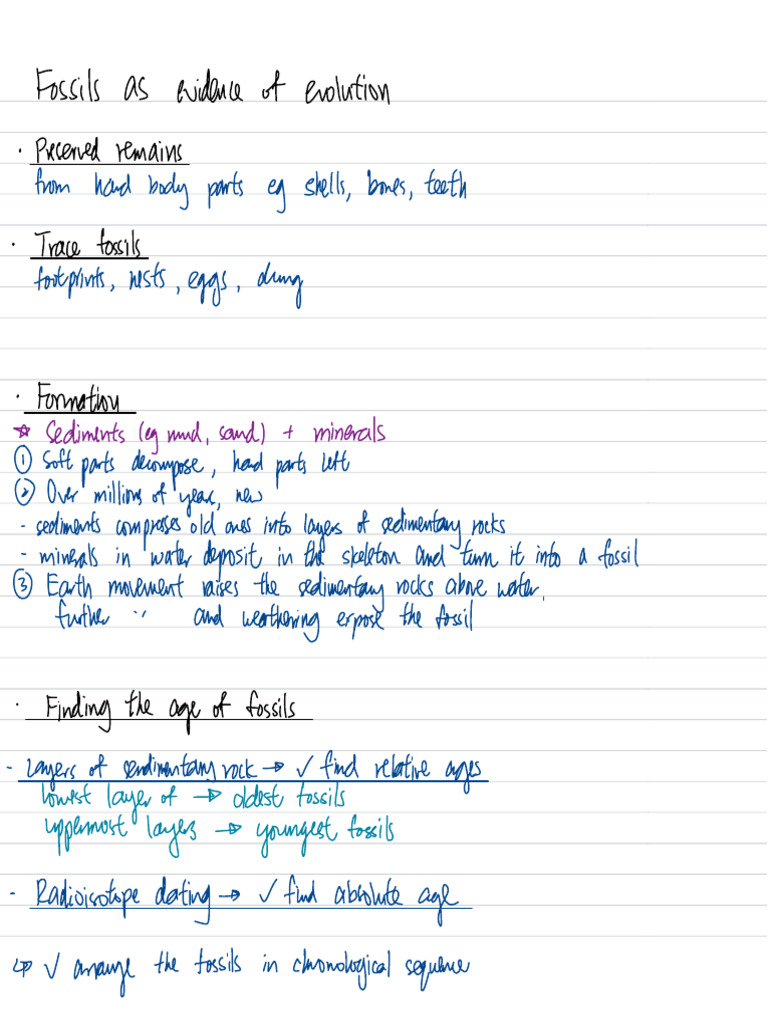 Fossils as evidence of evolution
· Preserved remains
from hard body parts eg shells, bones, teeth
· Trace fossils
footprints, nests, eggs, dung
· Formation
☆ Sediments (eg mud, sand) + minerals
① Soft parts decompose, hard parts left
② Over millions of year, new
- sediments compresses old ones into layers of sedimentary rocks
- minerals in water deposit in the skeleton and turn it into a fossil
③ Earth movement raises the sedimentary rocks above water.
further '' and weathering expose the fossil
· Finding the age of fossils
- Layers of sendimentary rock → ✓ find relative ages
lowest layer of → oldest fossils
uppermost layers → youngest fossils
- Radioisotope dating → ✓ find absolute age
↳ ✓ arrange the fossils in chronological sequence